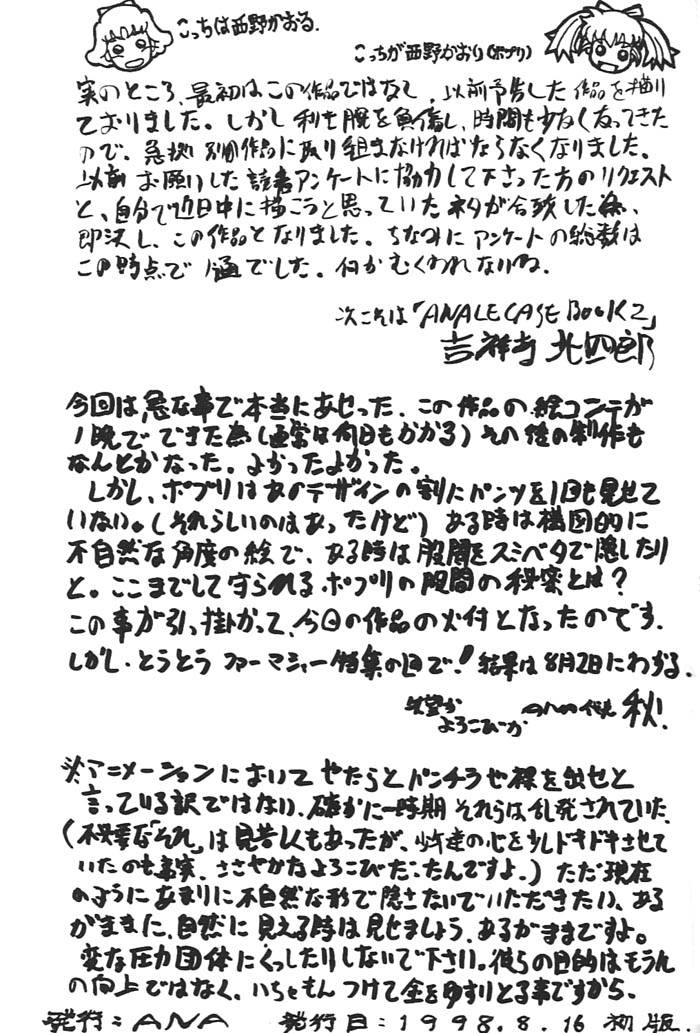 こっちは西野かおる.
こっちが西野かおり(ポプリ)
実のところ、最初はこの作品ではなく、以前予告した作品を描い
ておりました。しかし利き腕を負傷し、時間も少なくなってきた
ので、急拠 別の作品に取り組まなければならなくなりました。
以前お願いした読者アンケートに協力して下さった方のリクエスト
と、自分で近日中に描こうと思っていたネタが合致した為、
即決し、この作品となりました。ちなみにアンケートの総数は
この時点で1通でした。何かむくわれないね。
次こそは「ANALE CASE BOOK 2」
吉祥寺 北四郎
今回は急な事で本当にあせった、この作品の絵コンテが
1晩でできた為(通常は何日もかかる)その後の制作も
なんとかなった。よかったよかった。
しかし、ポプリはあのデザインの割にパンツを1回も見せて
いない。(それらしいのはあったけど)ある時は構図的に
不自然な角度の絵で、ある時は股間をスミベタで隠したり
と。ここまでして守られるポプリの股間の秘密とは?
この事が引っ掛かって、今回の作品の火付となったのです.
しかし、とうとうファーマシャー特集の回で!結果は8月2日にわかる.
よろこびーか 秋!
※アニメーションにおいてやたらとパンチラや裸を出せと
言っている訳ではない.確かに一時期それらは乱発されていた
(不必要な"それ"は見苦しくもあったが、少年達の心を少しドキドキさせて
いたのも事実.ささやかなよろこびだったんですよ.)ただ現在
のようにあまりに不自然な形で隠さないでいただきたい、ある
がままに、自然に見える時は見せましょう、あるがままですよ。
変な圧力団体にくっしたりしないで下さい。彼らの目的はもうんの
向上ではなく、いちゃもんつけて金をゆすりとる事ですから.
発行:ANA 発行日:1998.8.16 初版.